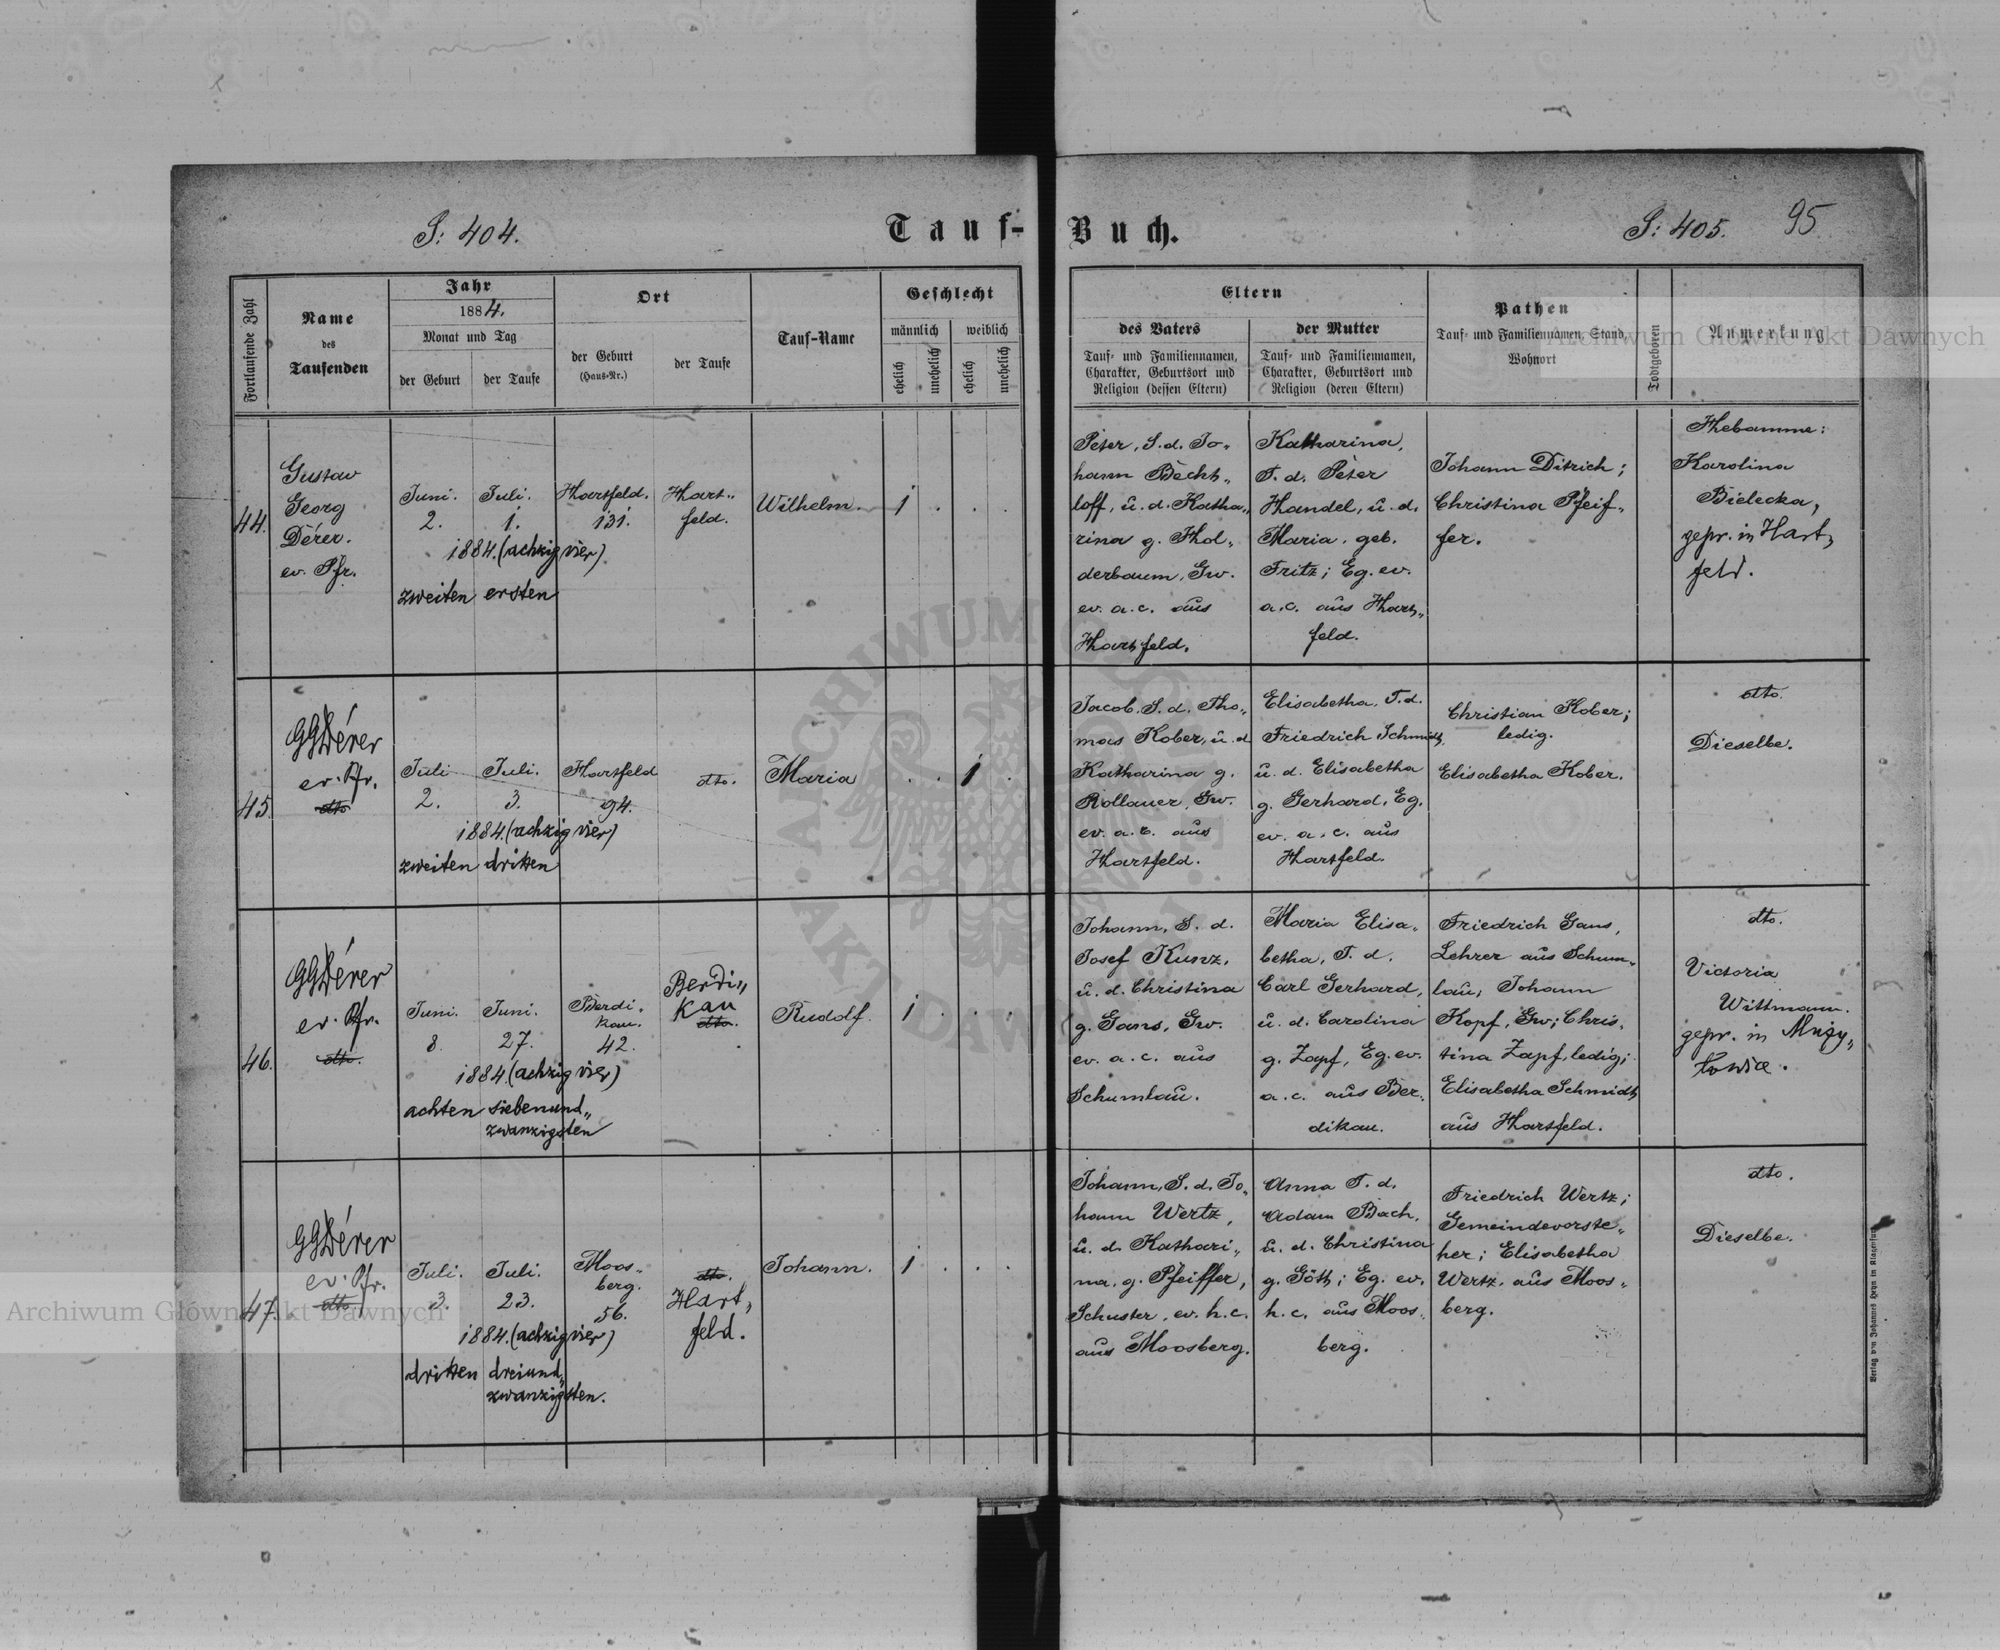 S: 404.
Tauf-Buch.
S: 405.
95
Fortlaufende Zahl
Name
des
Taufenden
Jahr
1884.
Monat und Tag
der Geburt
der Taufe
Ort
der Geburt
(Haus-Nr.)
der Taufe
Tauf-Name
Geschlecht
männlich
weiblich
ehelich
unehelich
ehelich
unehelich
Eltern
des Vaters
Tauf- und Familiennamen,
Charakter, Geburtsort und
Religion (dessen Eltern)
der Mutter
Tauf- und Familiennamen,
Charakter, Geburtsort und
Religion (deren Eltern)
Pathen
Tauf- und Familiennamen, Stand,
Wohnort
Todtgeboren
Anmerkung
44.
Gustav
Georg
Dérer.
ev. Pfr.
Juni.
2.
Juli.
1.
1884. (achzig vier)
zweiten ersten
Hartfeld.
131.
Hart"
feld.
Wilhelm.
1 . . .
Peter, S. d. Jo"
hann Becht"
loff, u. d. Katha"
rina g. Hol"
derbaum, Gw.
ev. a. c. aus
Hartfeld.
Katharina,
T. d. Peter
Handel, u. d.
Maria, geb.
Fritz; Eg. ev.
a. c. aus Hart"
feld.
Johann Ditrich;
Christina Pfeif"
fer.
Hebamme:
Karolina
Bielecka,
gepr. in Hart"
feld.
45.
GGDérer
ev. Pfr.
dto
Juli
2.
Juli.
3.
1884. (achzig vier)
zweiten dritten
Hartfeld
94.
dto.
Maria
. . 1 .
Jacob, S. d. Tho"
mas Kober, u. d.
Katharina g.
Rollauer, Gw.
ev. a. c. aus
Hartfeld.
Elisabetha, T. d.
Friedrich Schmidt,
u. d. Elisabetha
g. Gerhard, Eg.
ev. a. c. aus
Hartfeld.
Christian Kober;
ledig.
Elisabetha Kober.
dto.
Dieselbe.
46.
GGDérer
ev. Pfr.
dto.
Juni.
8.
Juni.
27.
1884. (achzig vier)
achten siebenund"
zwanzigsten
Berdi"
kau.
42.
Berdi"
kau
dto.
Rudolf.
1 . . .
Johann, S. d.
Josef Kunz,
u. d. Christina
g. Gans, Gw.
ev. a. c. aus
Schumlau.
Maria Elisa"
betha, T. d.
Carl Gerhard,
u. d. Carolina
g. Zapf, Eg. ev.
a. c. aus Ber"
dikau.
Friedrich Gans,
Lehrer aus Schum"
lau; Johann
Kopf, Gw; Chris"
tina Zapf, ledig;
Elisabetha Schmidt
aus Hartfeld.
dto.
Victoria
Wittmann.
gepr. in
47.
GGDérer
ev. Pfr.
dto.
Juli.
3.
Juli.
23.
1884. (achzig vier)
dritten dreiund"
zwanzigsten.
Moos"
berg.
56.
dto.
Hart"
feld.
Johann.
1 . . .
Johann, S. d. Jo"
hann Wertz,
u. d. Kathari"
na, g. Pfeiffer,
Schuster, ev. h. c.
aus Moosberg.
Anna T. d.
Adam Bach,
u. d. Christina
g. Göth; Eg. ev.
h. c. aus Moos"
berg.
Friedrich Wertz;
Gemeindevorste"
her; Elisabetha
Wertz, aus Moos"
berg.
dto.
Dieselbe.
Verlag von Johannes Heyn in Klagenfurt
Archiwum Główne Akt Dawnych
Archiwum Główne Akt Dawnych